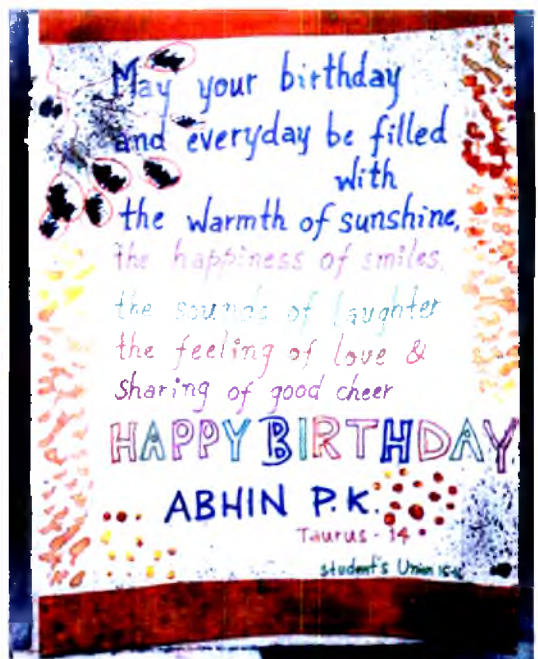 May your birthday
and everyday be filled
with
the warmth of sunshine,
the happiness of smiles,
the sounds of laughter
the feeling of love &
Sharing of good cheer
HAPPY BIRTHDAY
ABHIN P.K.
Taurus - 14
Student's Union